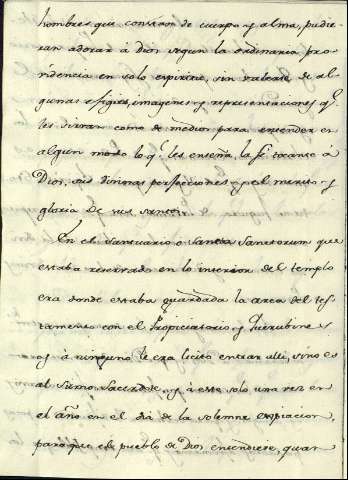 hombres que constan de cuerpo y alma, pudie-
ran adorar á Dios segun la ordinaria pro-
videncia en solo espiritu, sin valerse de al-
gunas efigies, imagenes y representaciones q.e
les sirvan como de medios para entender en
algun modo lo q.e les enseña la fe tocante á
Dios, sus divinas perfecciones y el merito y
gloria de sus santos.
En el Santuario o Sancta Sanctorum que
estaba reservado en lo interior del templo
era donde estaba guardada la arca del tes-
tamento con el Propiciatorio y Querubines
y á ninguno le era licito entrar alli, sino es
al Sumo Sacerdote, y á este solo una vez en
el año en el dia de la solemne expiacion,
para que el pueblo de Dios entendiese, quan